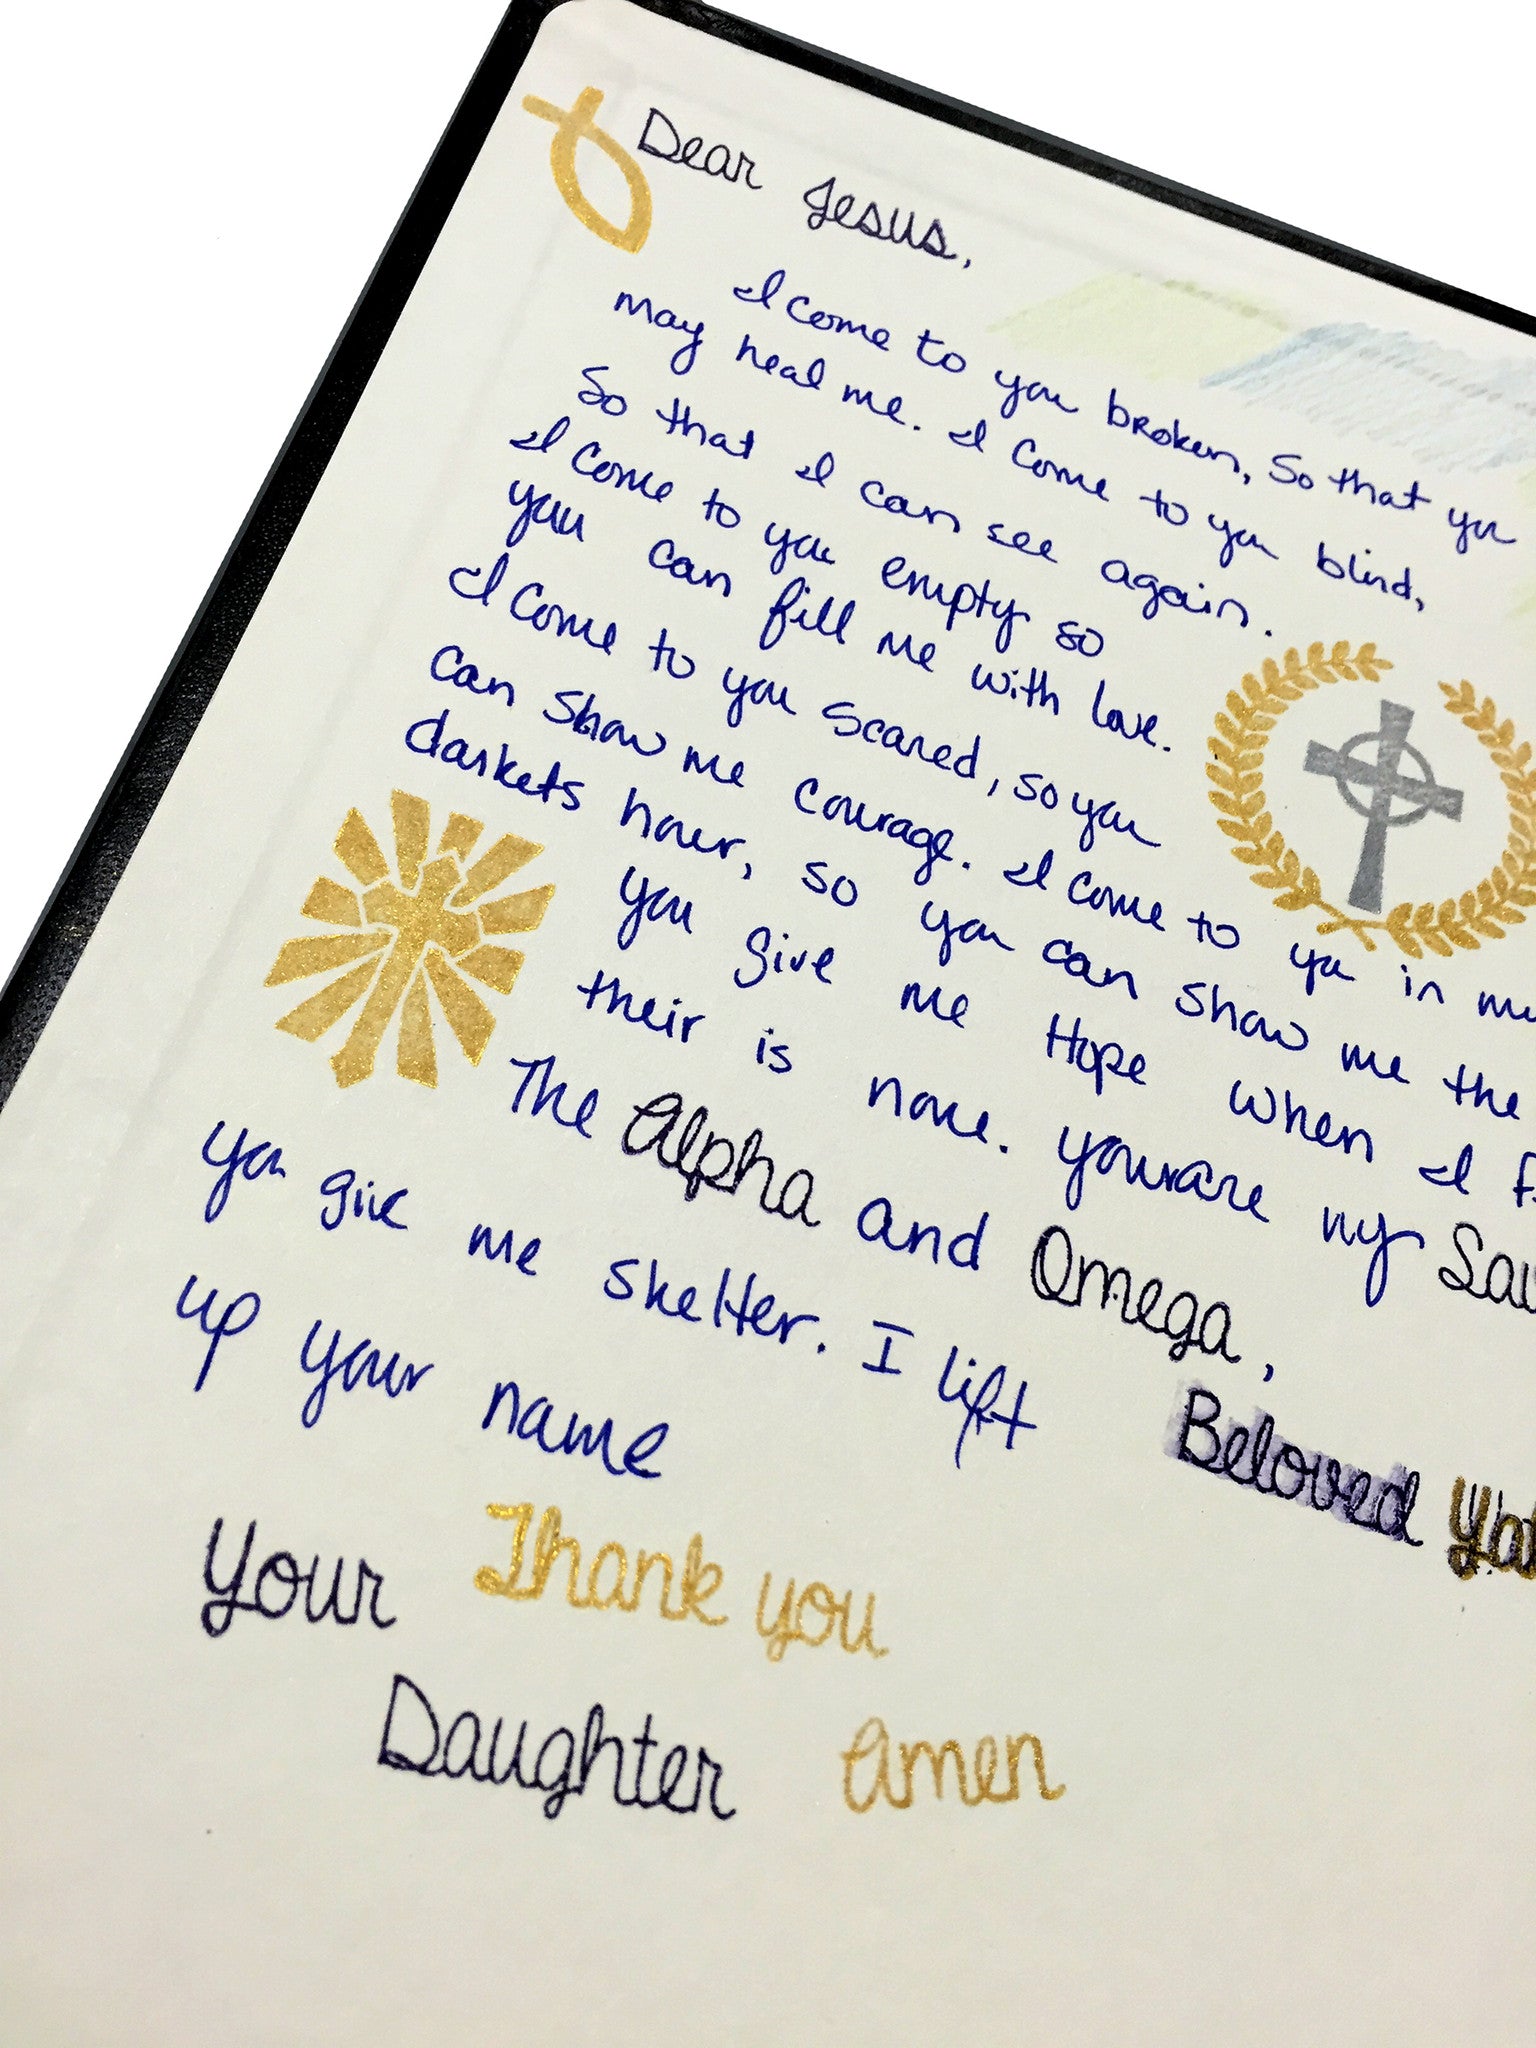 Dear Jesus,
I come to you broken, so that you
may heal me. I come to you blind,
So that I can see again.
I come to you empty so
you can fill me with love.
I come to you scared, so you
can show me courage. I come to you in my
darkets hour, so you can show me the
you give me Hope when I
their is none. You are my
The Alpha and Omega,
you give me shelter. I lift
up your name
Beloved
Your Thank you
Daughter Amen